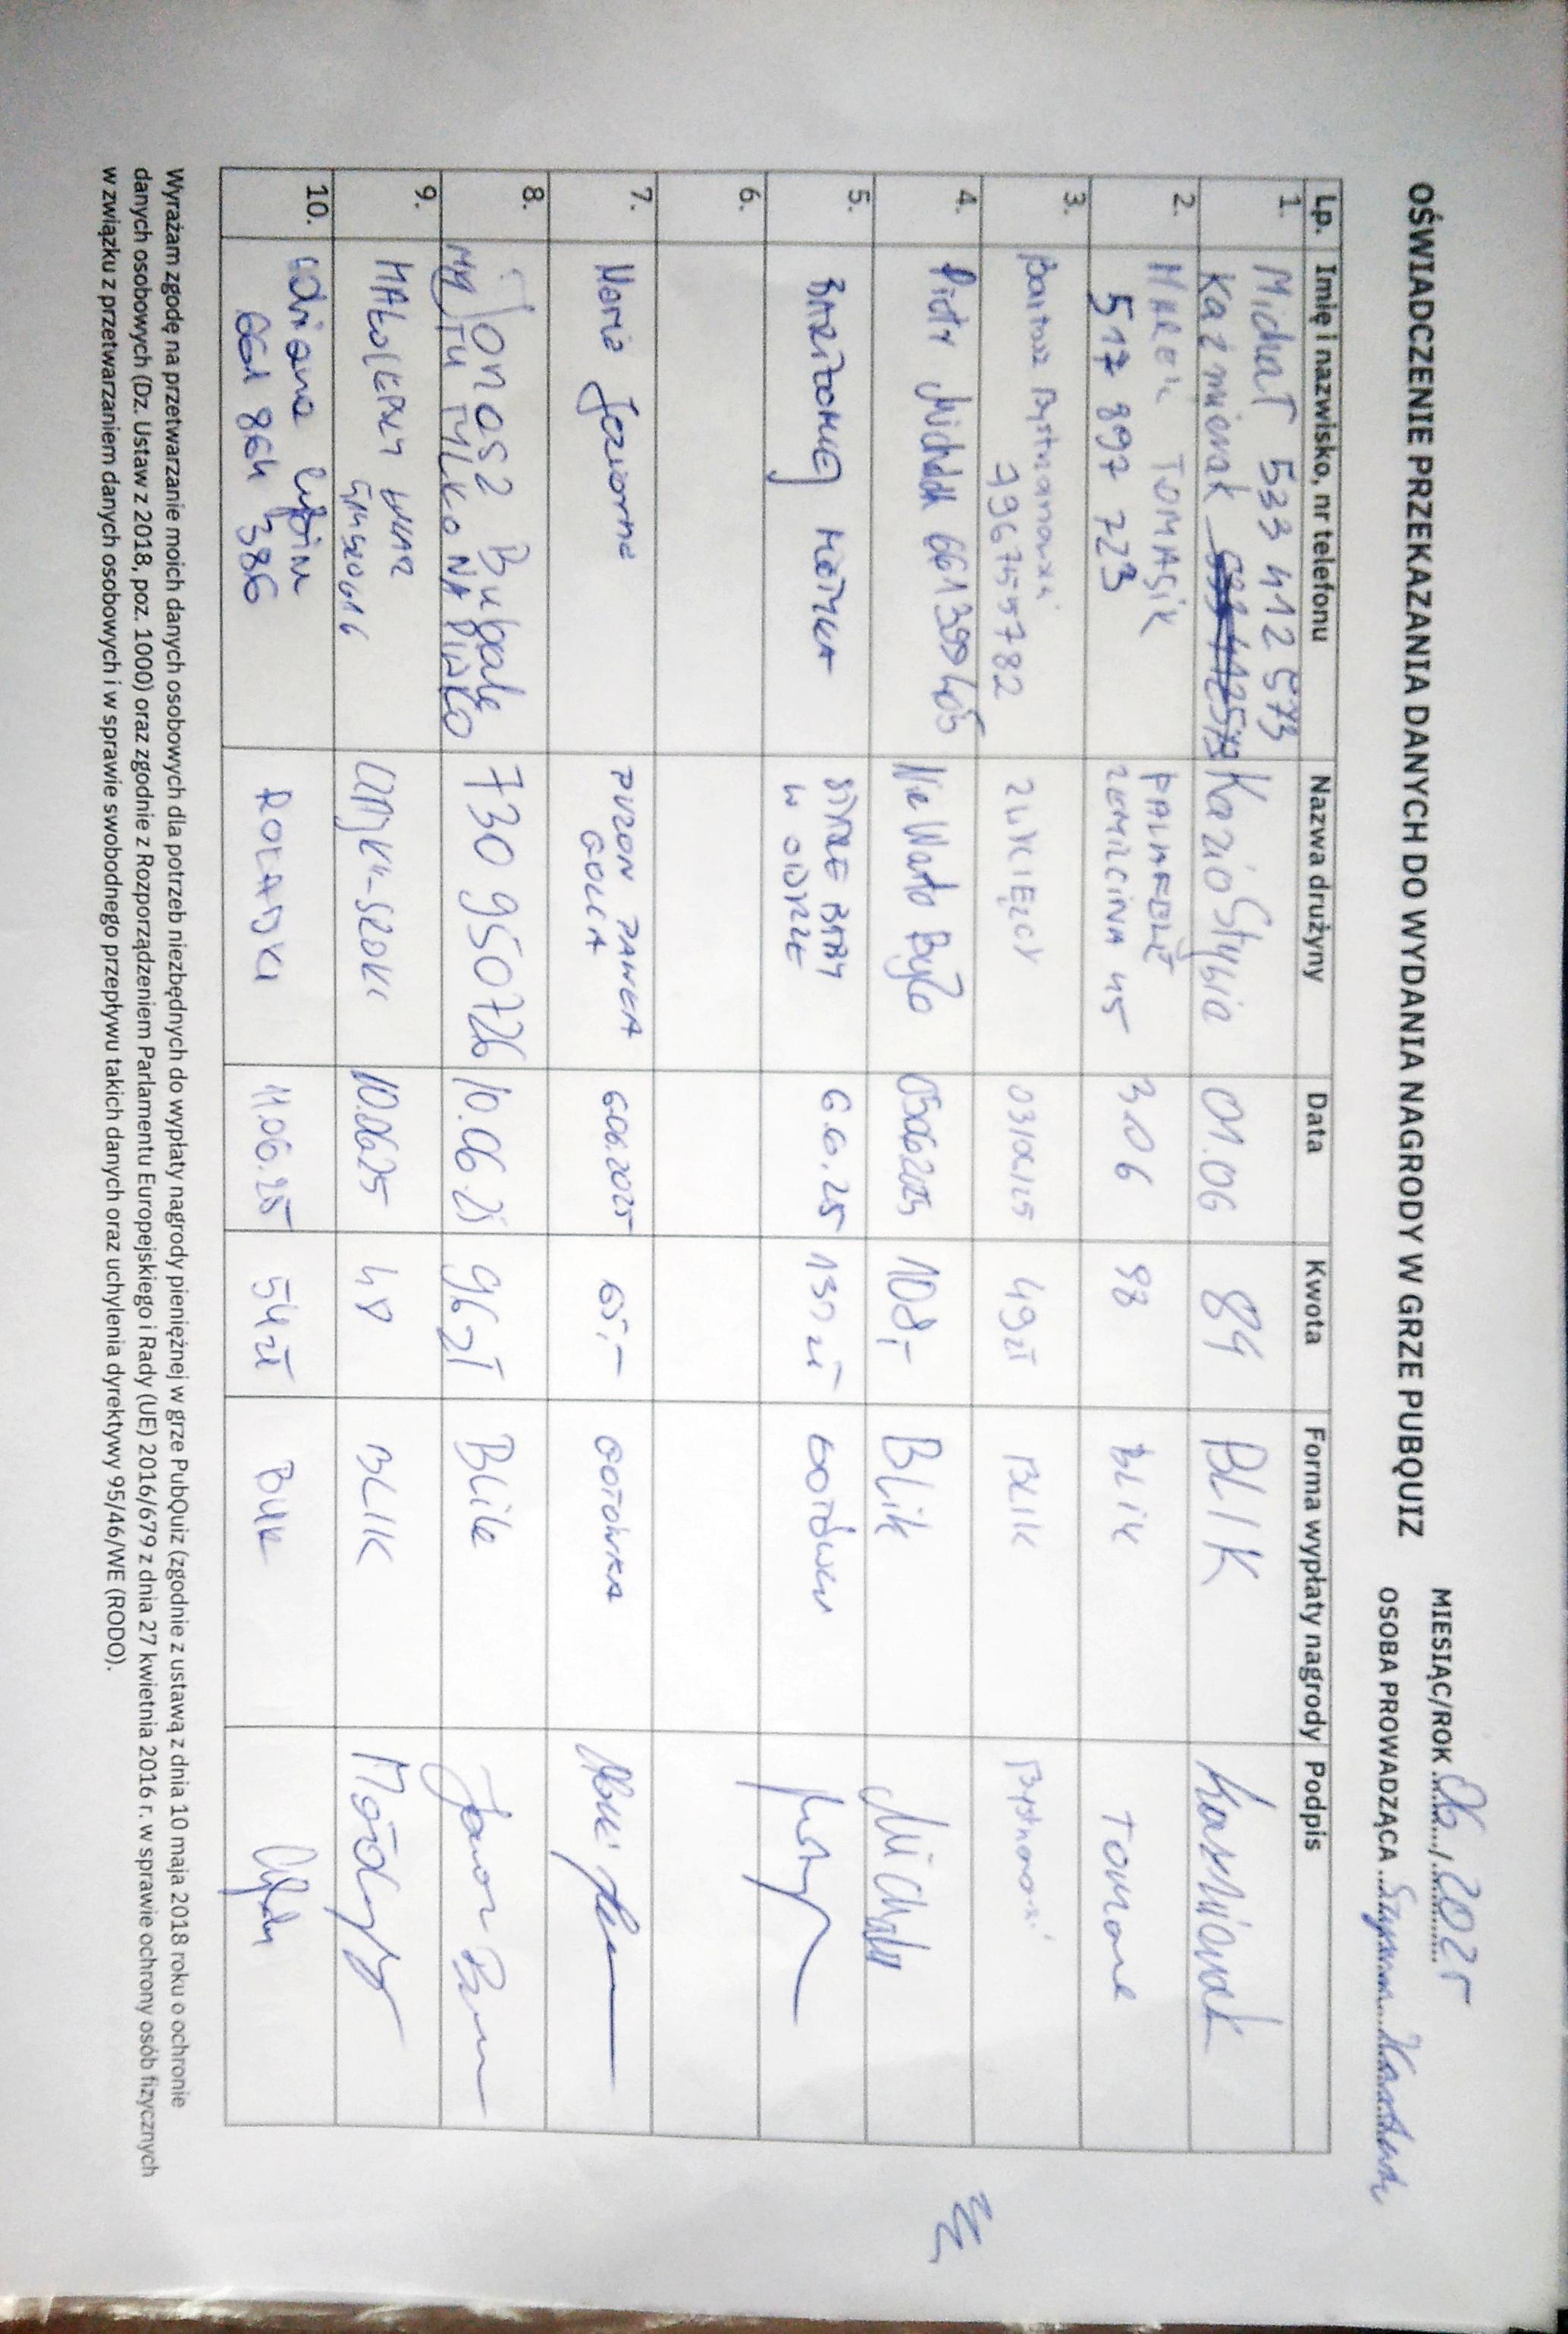 OŚWIADCZENIE PRZEKAZANIA DANYCH DO WYDANIA NAGRODY W GRZE PUBQUIZ
MIESIĄC/ROK 06 / 2025
OSOBA PROWADZĄCA Szymon
Lp. Imię i nazwisko, nr telefonu Nazwa drużyny Data Kwota Forma wypłaty nagrody Podpis
1. Michał 533 412 573
Kaźmierak Kazio Stynia 01.06 89 BLIK Kaźmierak
2. MAREK TOMASIK
517 897 723 3.06 98 BLIK
3. Bartosz Bystrzanowski
796755782 ZWYCIĘZCY 03/06/25 49zł BLIK
4. Piotr Michalak 661399405 Nie Warto Było 05062025 108,- Blik Michalak
5. BARTŁOMIEJ STARE BABY
W ODRZE 6.6.25 130 zł GOTÓWKA
6.
7. Maria Jaworna PUZON PAWŁA
GOLCA 6.06.2025 65,- GOTÓWKA
8. Jonasz Bubała
MY TU TYLKO NA PIWKO 730 950 726 10.06.25 96zł Blik
9. MAŁOLEPSZY
10.06.25 48 BLIK
10. 661 864 386 ROLADKI 11.06.25 54 zł BLIK
Wyrażam zgodę na przetwarzanie moich danych osobowych dla potrzeb niezbędnych do wypłaty nagrody pieniężnej w grze PubQuiz (zgodnie z ustawą z dnia 10 maja 2018 roku o ochronie
danych osobowych (Dz. Ustaw z 2018, poz. 1000) oraz zgodnie z Rozporządzeniem Parlamentu Europejskiego i Rady (UE) 2016/679 z dnia 27 kwietnia 2016 r. w sprawie ochrony osób fizycznych
w związku z przetwarzaniem danych osobowych i w sprawie swobodnego przepływu takich danych oraz uchylenia dyrektywy 95/46/WE (RODO).